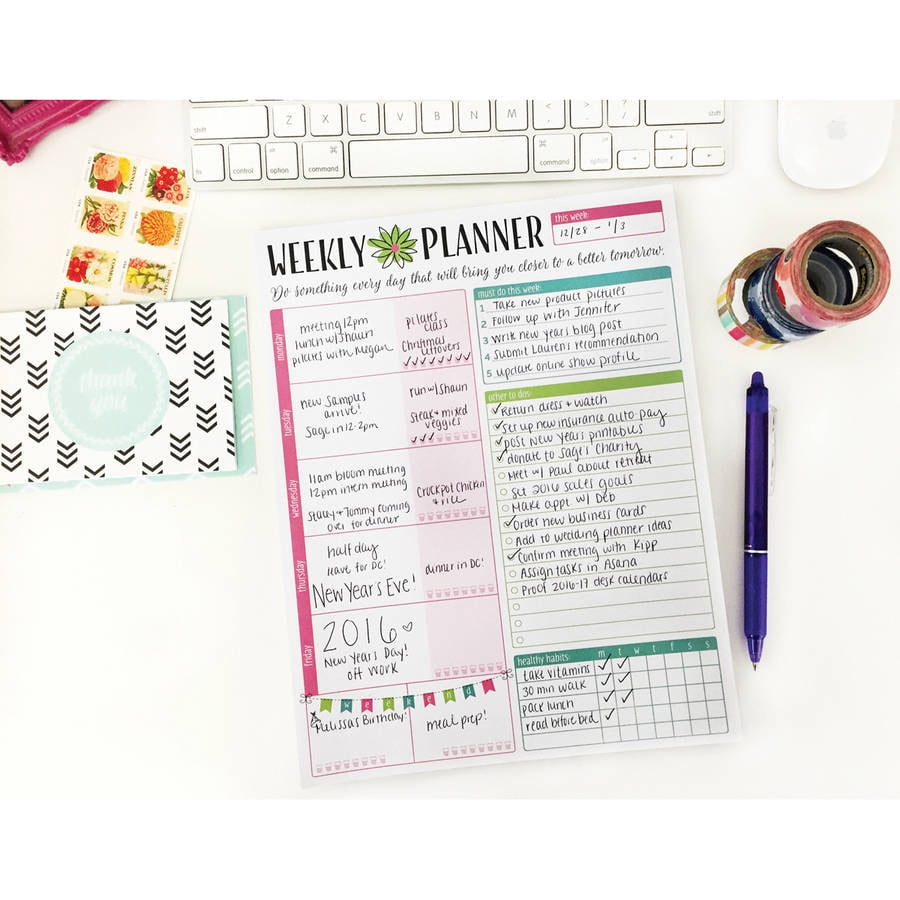 shift
Z
X
C
V
B
N
M
<
,
>
.
?
/
shift
fn
control
option
command
⌘
⌘
command
option
thank
you
WEEKLY PLANNER
this week:
12/28 - 1/3
Do something every day that will bring you closer to a better tomorrow.
monday
meeting 12pm
lunch w/Shaun
pilates with Megan
pilates
class
Christmas
leftovers
tuesday
new samples
arrive!
Sage in 12-2pm
run w/Shaun
steak + mixed
veggies
wednesday
11am bloom meeting
12pm intern meeting
Stacey + Tommy coming
over for dinner
Crockpot Chicken
+ rice
thursday
half day
leave for DC!
New Year's Eve!
dinner in DC!
friday
2016 ♡
New Years Day!
off work
weekend
Melissa's Birthday!
meal prep!
must do this week:
1 Take new product pictures
2 Follow up with Jennifer
3 Write new years blog post
4 Submit Lauren's recommendation
5 update online show profile
other to dos:
✓ Return dress + watch
✓ Set up new insurance auto pay
✓ post New Years printables
✓ donate to Sage's Charity
Meet w/ Paul about retreat
Set 2016 sales goals
Make appt w/ Deb
✓ Order new business cards
Add to wedding planner ideas
✓ Confirm meeting with Kipp
Assign tasks in Asana
Proof 2016-17 desk calendars
healthy habits: m t w t f s s
take vitamins ✓ ✓
30 min walk ✓ ✓
pack lunch ✓ ✓
read before bed ✓